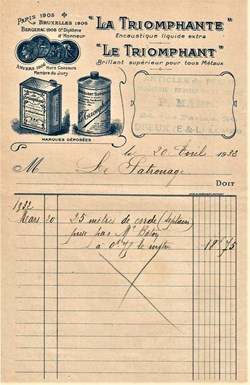 PARIS 1905
BRUXELLES 1905
BERGERAC 1905 Gd Diplôme
d'Honneur
ANVERS 1906 Hors Concours
Membre du Jury
"LA TRIOMPHANTE"
Encaustique liquide extra
"LE TRIOMPHANT"
Brillant supérieur pour tous Métaux
MARQUES DÉPOSÉES
le, 20 Avril 1933
M Le Patronage
DOIT
1932
Mars 20 25 mètres de corde
pris par Mr
à 0.75 le mètre 18 75